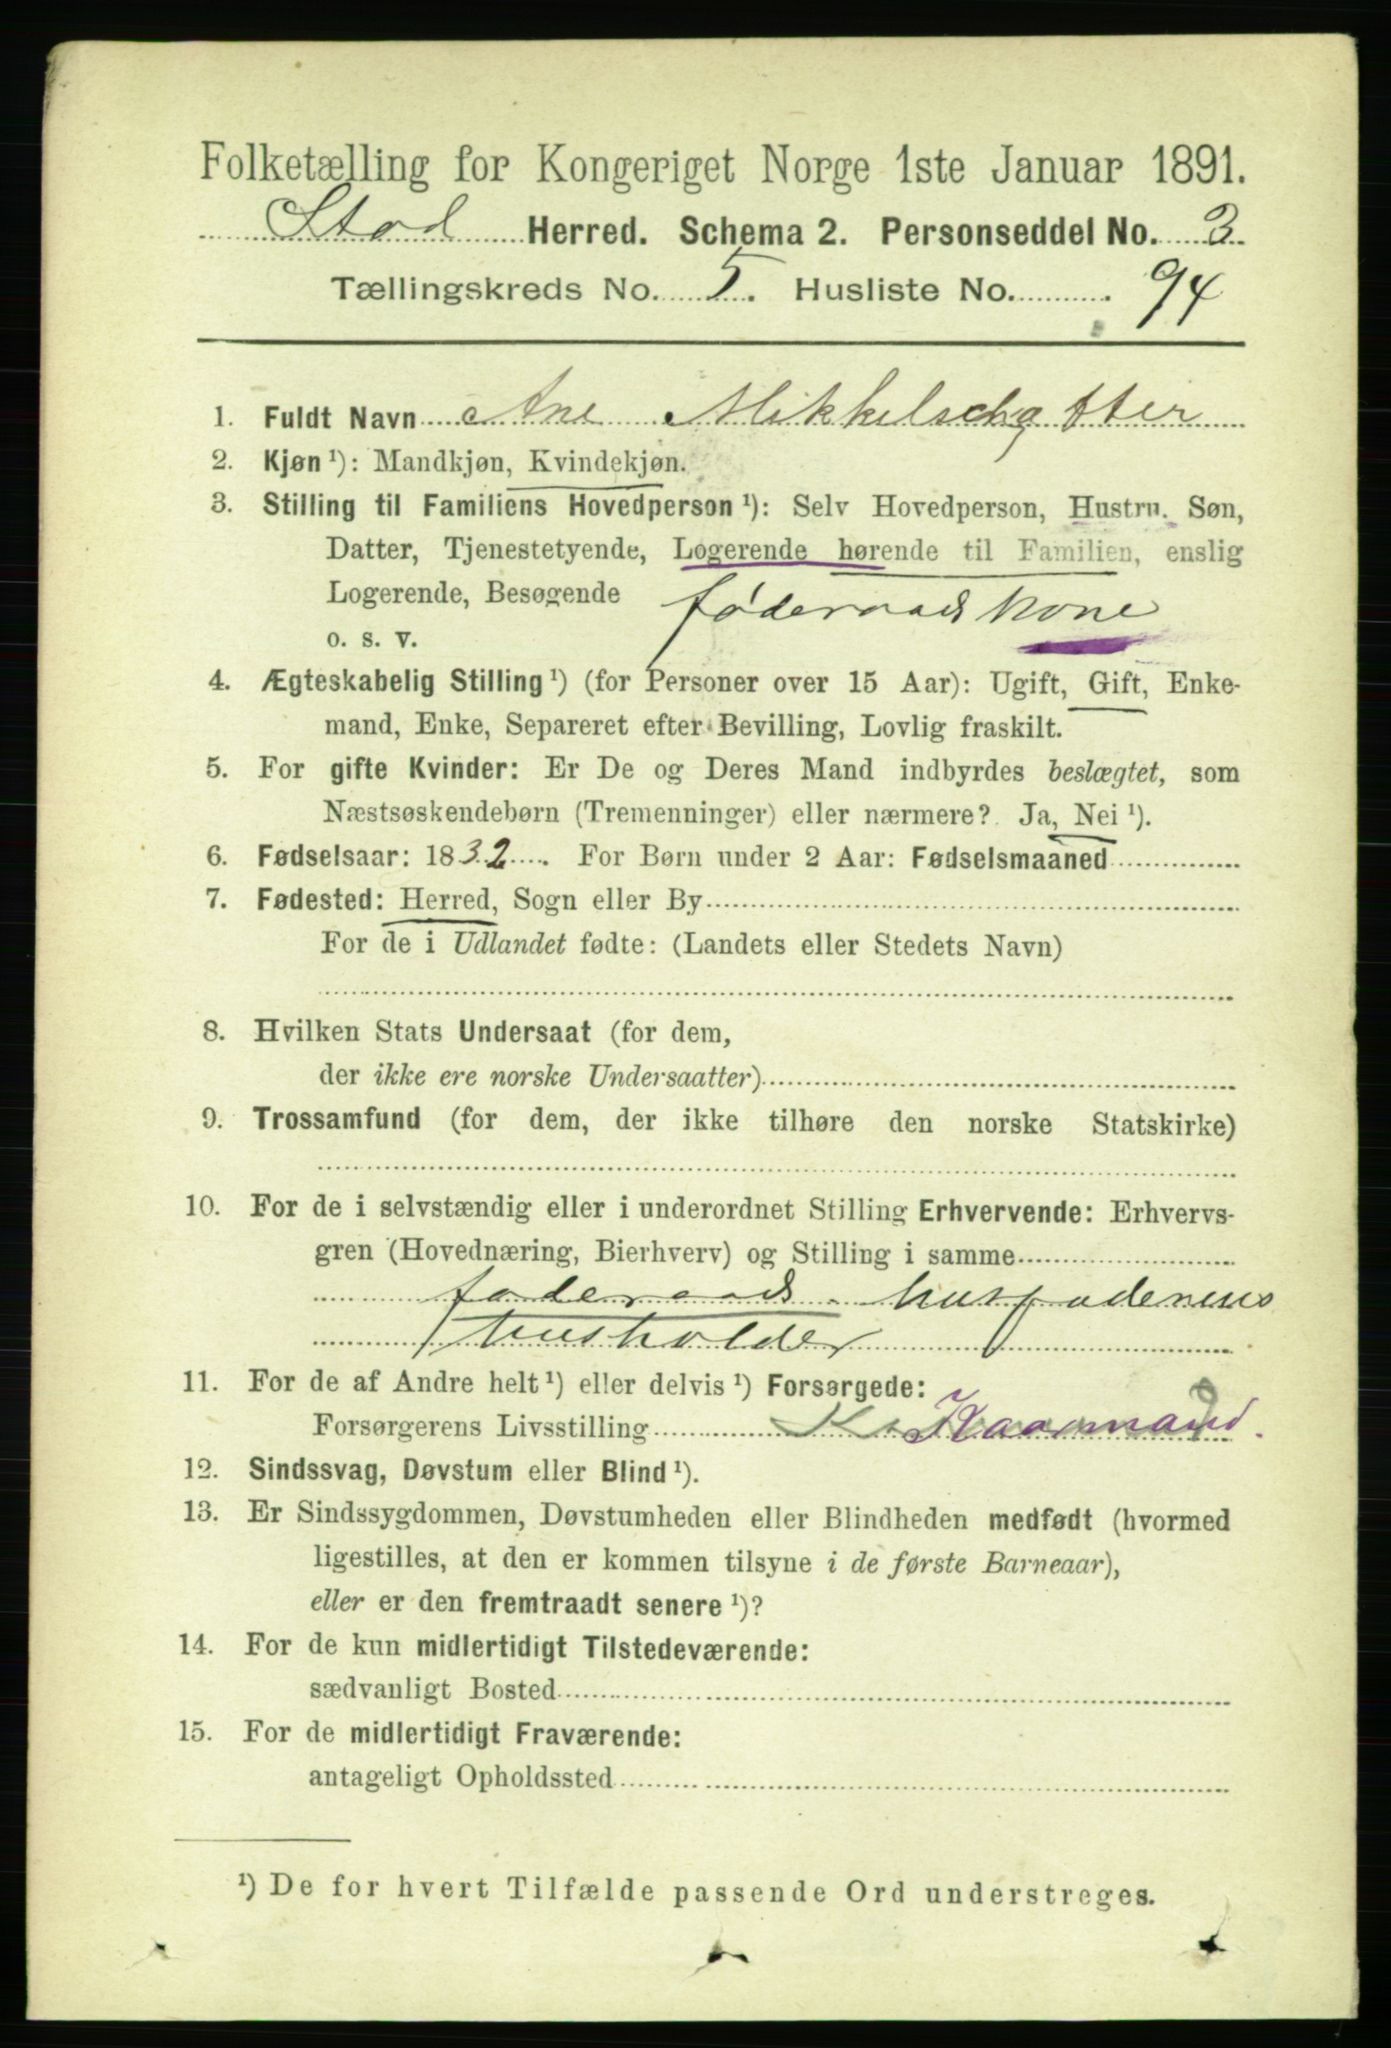 Folketælling for Kongeriget Norge 1ste Januar 1891.
Stod Herred. Schema 2. Personseddel No. 3
Tællingskreds No. 5. Husliste No. 94
1. Fuldt Navn Ane Mikkelsdatter
2. Kjøn ¹): Mandkjøn, Kvindekjøn.
3. Stilling til Familiens Hovedperson ¹): Selv Hovedperson, Hustru. Søn,
Datter, Tjenestetyende, Logerende hørende til Familien, enslig
Logerende, Besøgende føderaads kone
o. s. v.
4. Ægteskabelig Stilling ¹) (for Personer over 15 Aar): Ugift, Gift, Enke-
mand, Enke, Separeret efter Bevilling, Lovlig fraskilt.
5. For gifte Kvinder: Er De og Deres Mand indbyrdes beslægtet, som
Næstsøskendebørn (Tremenninger) eller nærmere? Ja, Nei ¹).
6. Fødselsaar: 1832. For Børn under 2 Aar: Fødselsmaaned
7. Fødested: Herred, Sogn eller By
For de i Udlandet fødte: (Landets eller Stedets Navn)
8. Hvilken Stats Undersaat (for dem,
der ikke ere norske Undersaatter)
9. Trossamfund (for dem, der ikke tilhøre den norske Statskirke)
10. For de i selvstændig eller i underordnet Stilling Erhvervende: Erhvervs-
gren (Hovednæring, Bierhverv) og Stilling i samme
føderaads
husholder
11. For de af Andre helt ¹) eller delvis ¹) Forsørgede:
Forsørgerens Livsstilling Kaarmand.
12. Sindssvag, Døvstum eller Blind ¹).
13. Er Sindssygdommen, Døvstumheden eller Blindheden medfødt (hvormed
ligestilles, at den er kommen tilsyne i de første Barneaar),
eller er den fremtraadt senere ¹)?
14. For de kun midlertidigt Tilstedeværende:
sædvanligt Bosted
15. For de midlertidigt Fraværende:
antageligt Opholdssted
¹) De for hvert Tilfælde passende Ord understreges.